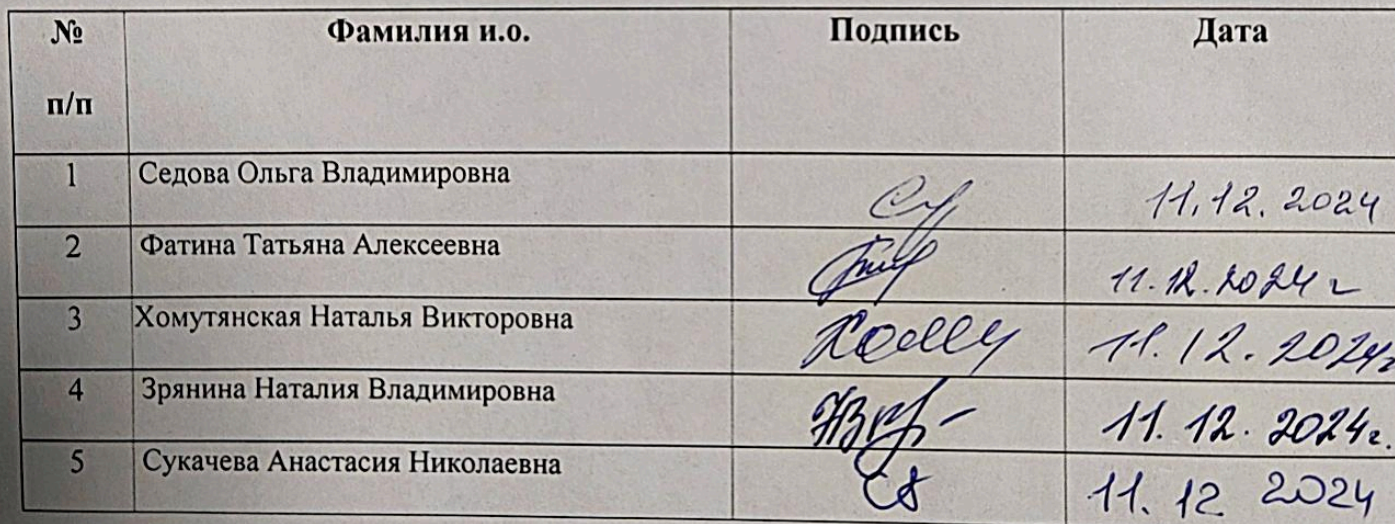 № п/п Фамилия и.о. Подпись Дата
1 Седова Ольга Владимировна 11.12.2024
2 Фатина Татьяна Алексеевна 11.12.2024 г
3 Хомутянская Наталья Викторовна 11.12.2024г
4 Зрянина Наталия Владимировна 11.12.2024г.
5 Сукачева Анастасия Николаевна 11.12 2024